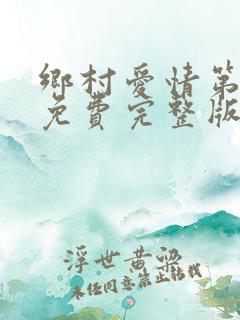 鄉村愛情第
免費完整版
浮世黄梁
未经同意禁止转载